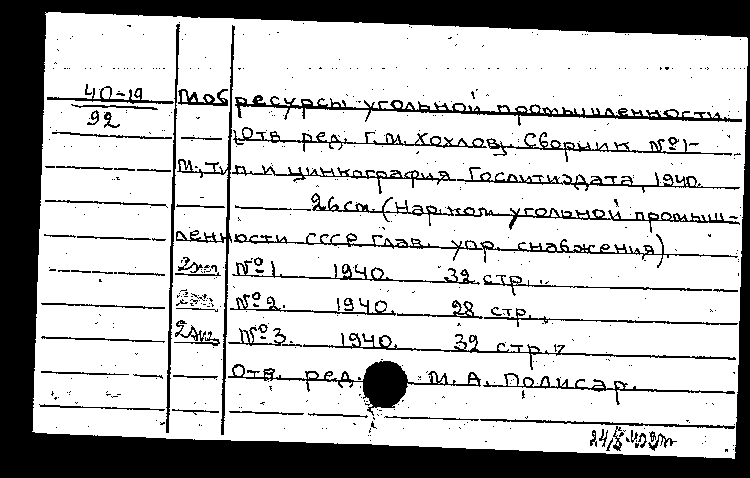 40-19
92
Мобресурсы угольной промышленности.
Отв. ред. Г. М. Хохлов. Сборник №1-
М., Тип. и цинкография Гослитиздата, 1940.
26 cm. (Нар. ком. угольной промыш=
ленности СССР Глав. упр. снабжения).
2 экз. №1. 1940. 32 стр.
2 экз. №2. 1940. 28 стр.
2 экз. №3. 1940. 32 стр.
Отв. ред. М. А. Полисар.